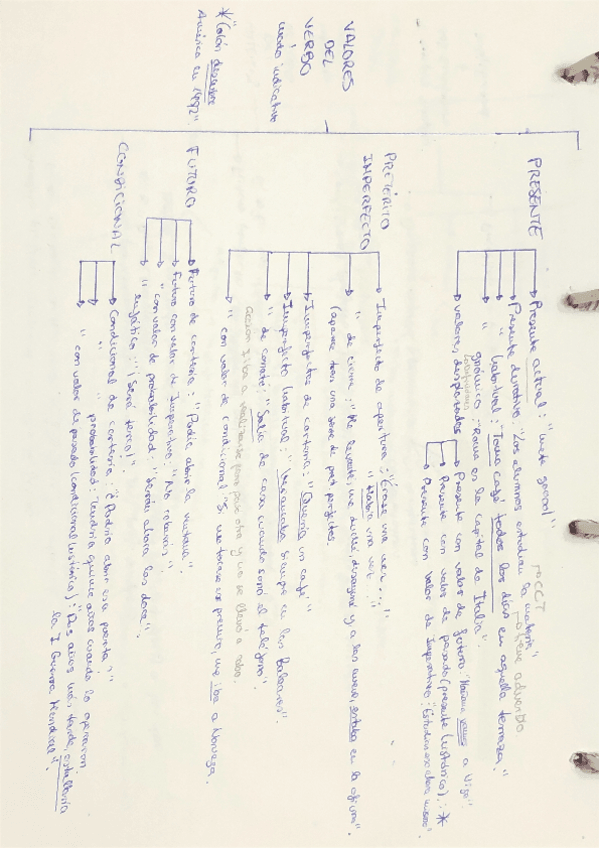 VALORES
DEL
VERBO
modo indicativo
*"Colón descubre
América en 1492".
PRESENTE
Presente actual: "mete gooool"
Presente durativo: "Los alumnos estudian la materia"
→ CCT
" habitual: "Tomo café todos los días en aquella terraza."
→ o tiene adverbio
" gnómico: "Roma es la capital de Italia".
valores desplazados
Presente con valor de futuro: "Mañana vamos a Vigo"
Presente con valor de pasado (presente histórico): *
Presente con valor de Imperativo: "Estudias eso ahora mismo"
PRETÉRITO
IMPERFECTO
Imperfecto de apertura: "Érase una vez..."
"Había una vez..."
" de cierre: "Me levanté, me duché, desayuné y a las nueve, estaba en la oficina".
(aparece tras una serie de pret. perfectos.
Imperfecto de cortesía: "Quería un café"
Imperfecto habitual: "Veraneaba siempre en las Baleares".
" de conato: "Salía de casa cuando sonó el teléfono".
acción q iba a realizarse pero pasa otra y no se llevó a cabo.
" con valor de condicional "Si me tocase un premio, me iba a Noruega.
FUTURO
Futuro de cortesía: "Podrá abrir la ventana".
Futuro con valor de Imperativo: "No robarás".
" con valor de probabilidad: "Serán ahora las doce".
" enfático: "¡Será terco!".
CONDICIONAL
Condicional de cortesía: "¿Podría abrir esa puerta?"
" probabilidad: "Tendría quince años cuando lo operaron.
" con valor de pasado (condicional histórico): "Dos años más tarde, estallaría
la I Guerra Mundial".